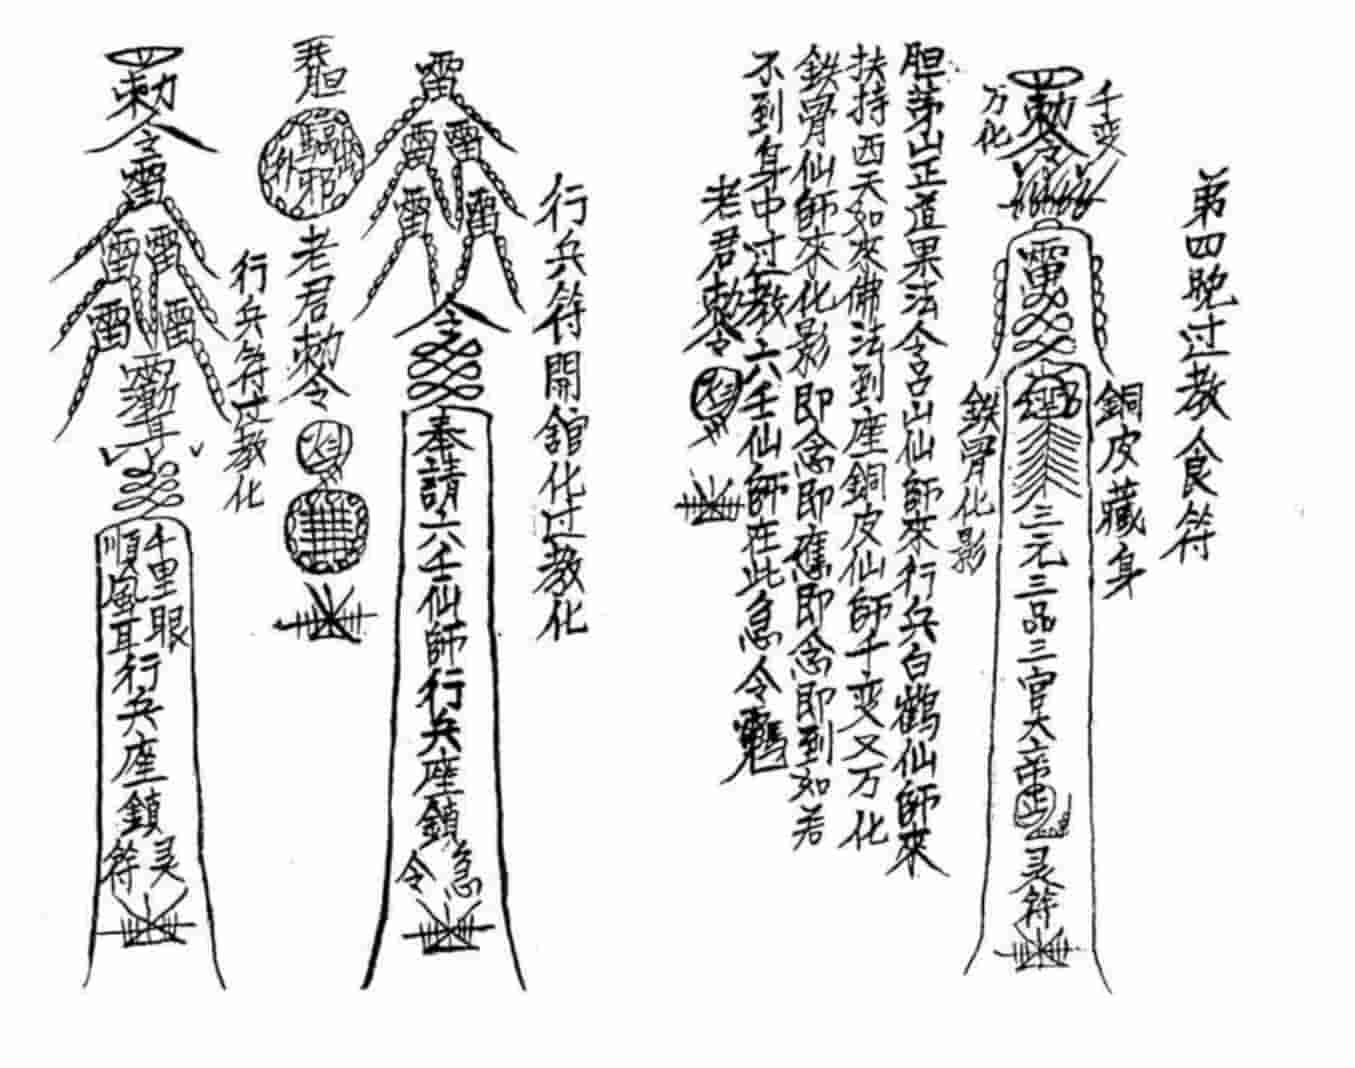 第四晚过教食符
千变
万化
勅令
雷
銅皮藏身
鉄骨化影
三元三品三官大帝
灵符
胆茅山正道果法令召山仙師來行兵白鶴仙師來
扶持西天如來佛法到座銅皮仙師千变又万化
鉄骨仙師來化影即念即應即念即到如若
不到身中过教六壬仙師在此急令
老君勅令
行兵符開舘化过教化
雷
雷雷
雷雷
令
奉請六壬仙師行兵座鎮
急令
胆
邪
老君勅令
行兵符过教化
勅令
雷
雷雷
雷雷
千里眼
順風耳
行兵座鎮
灵符